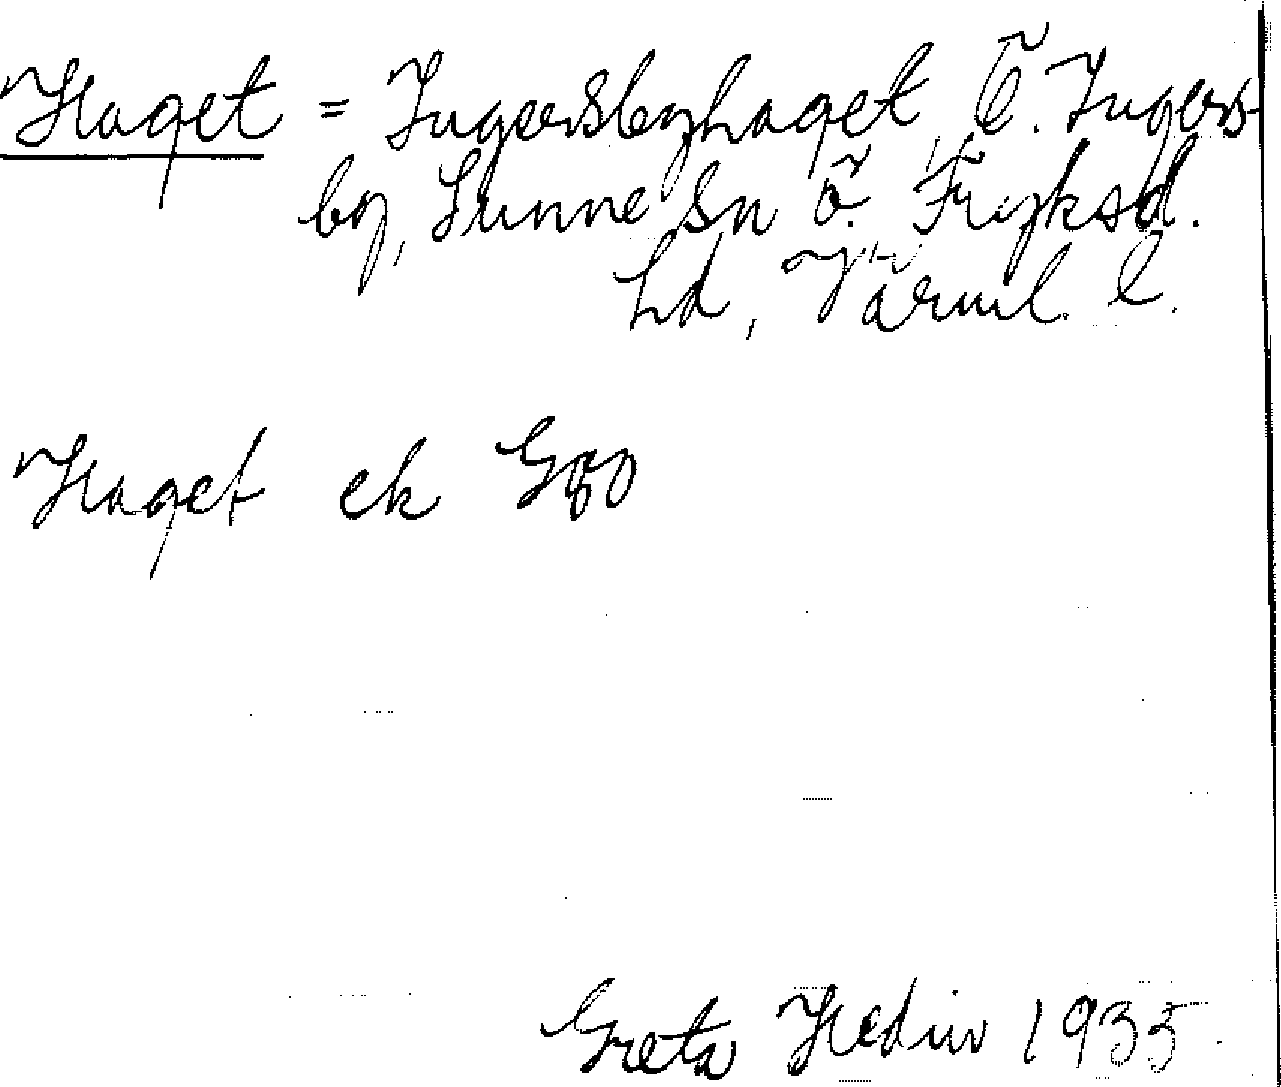 Haget = Ingersbyhaget, Ö. Ingers-
by, Sunne Sn Ö. Fryksd.
hd, Värml. l.
Haget ek G80
Greta Hedin 1935.